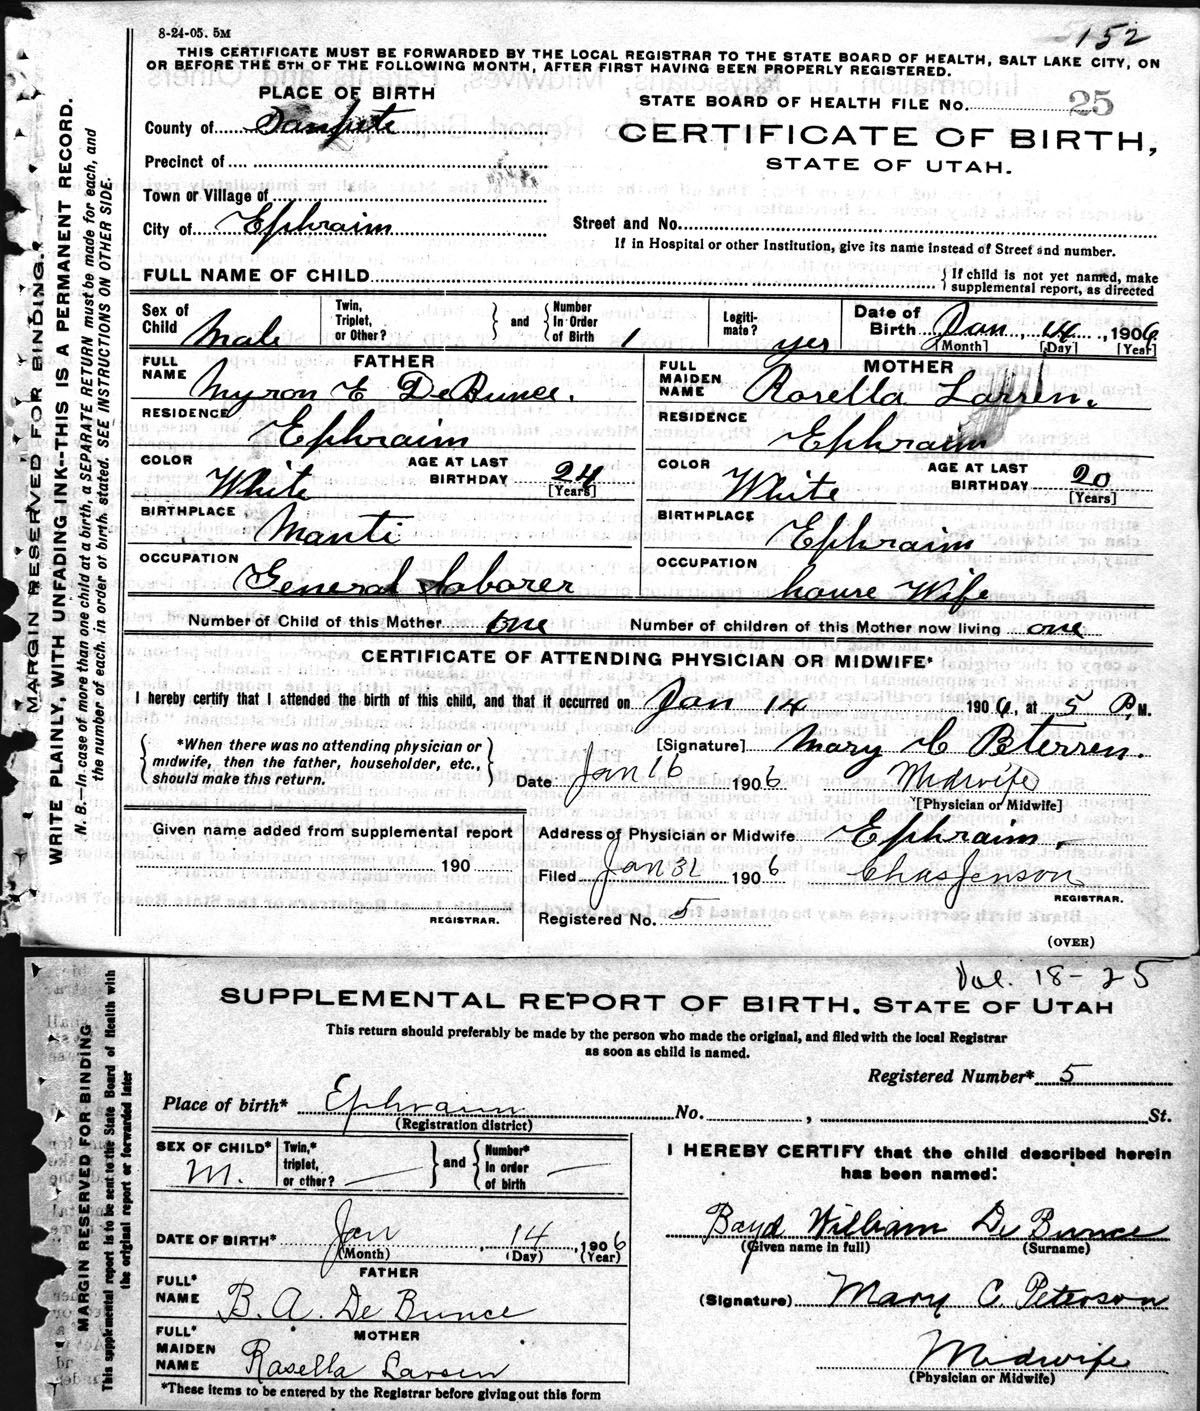 8-24-05. 5M
152
THIS CERTIFICATE MUST BE FORWARDED BY THE LOCAL REGISTRAR TO THE STATE BOARD OF HEALTH, SALT LAKE CITY, ON
OR BEFORE THE 5TH OF THE FOLLOWING MONTH, AFTER FIRST HAVING BEEN PROPERLY REGISTERED.
MARGIN RESERVED FOR BINDING.
WRITE PLAINLY, WITH UNFADING INK--THIS IS A PERMANENT RECORD.
N. B.--In case of more than one child at a birth, a SEPARATE RETURN must be made for each, and
the number of each, in order of birth, stated. SEE INSTRUCTIONS ON OTHER SIDE.
PLACE OF BIRTH
County of Sanpete
Precinct of
Town or Village of
City of Ephraim
STATE BOARD OF HEALTH FILE No. 25
CERTIFICATE OF BIRTH,
STATE OF UTAH.
Street and No.
If in Hospital or other Institution, give its name instead of Street and number.
FULL NAME OF CHILD
If child is not yet named, make
supplemental report, as directed
Sex of Child Male
Twin, Triplet, or Other?
and
Number In Order of Birth 1
Legiti-mate? yes
Date of Birth Jan 14, 1906
[Month] [Day] [Year]
FATHER
FULL NAME Myron E DeBunce.
RESIDENCE Ephraim
COLOR White AGE AT LAST BIRTHDAY 24
[Years]
BIRTHPLACE Manti
OCCUPATION General Laborer
MOTHER
FULL MAIDEN NAME Rosella Larsen.
RESIDENCE Ephraim
COLOR White AGE AT LAST BIRTHDAY 20
[Years]
BIRTHPLACE Ephraim
OCCUPATION house Wife
Number of Child of this Mother one Number of children of this Mother now living one
CERTIFICATE OF ATTENDING PHYSICIAN OR MIDWIFE*
I hereby certify that I attended the birth of this child, and that it occurred on Jan 14 1906, at 5 P.M.
*When there was no attending physician or
midwife, then the father, householder, etc.,
should make this return.
[Signature] Mary C Peterson.
Date Jan 16 1906 Midwife
[Physician or Midwife]
Given name added from supplemental report
190
REGISTRAR.
Address of Physician or Midwife Ephraim.
Filed Jan 31 1906 Chas Jenson
REGISTRAR.
Registered No. 5
(OVER)
Vol. 18-25
SUPPLEMENTAL REPORT OF BIRTH, STATE OF UTAH
This return should preferably be made by the person who made the original, and filed with the local Registrar
as soon as child is named.
MARGIN RESERVED FOR BINDING
This supplemental report is to be sent to the State Board of Health with
the original report or forwarded later
Registered Number* 5
Place of birth* Ephraim No. , St.
(Registration district)
SEX OF CHILD* M.
Twin,* triplet, or other?
and
Number* in order of birth
DATE OF BIRTH* Jan , 14 , 1906
(Month) (Day) (Year)
FATHER
FULL* NAME B. A. De Bunce
MOTHER
FULL* MAIDEN NAME Rasella Larsen
*These items to be entered by the Registrar before giving out this form
I HEREBY CERTIFY that the child described herein
has been named:
Boyd William De Bunce
(Given name in full) (Surname)
(Signature) Mary C. Peterson
Midwife
(Physician or Midwife)